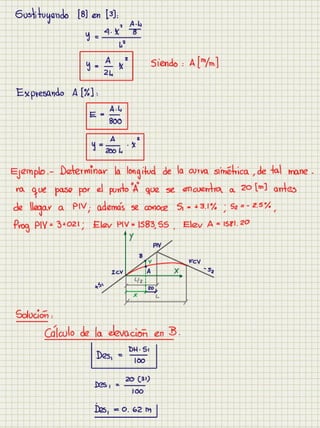 Sustituyendo [8] en [3]:
y = 4·x² (A·L/8) / L²
y = A/2L x²   Siendo: A [m/m]
Expresando A [%]:
E = A·L/800
y = A/200L · x²
Ejemplo.- Determinar la longitud de la curva simétrica, de tal mane-
ra que pase por el punto "A" que se encuentra a 20 [m] antes
de llegar a PIV; además se conoce S₁ = +3.1% ; S₂ = -2.5%,
Prog PIV = 3+021; Elev PIV = 1583,55 . Elev A = 1581.20
y
PIV
B
Y
FCV
ZCV
A
X
-S₂
+S₁
L/2
20
X
L
Solución:
Cálculo de la elevación en B.
Des₁ = DH·S₁/100
Des₁ = 20 (3.1)/100
Des₁ = 0.62 m